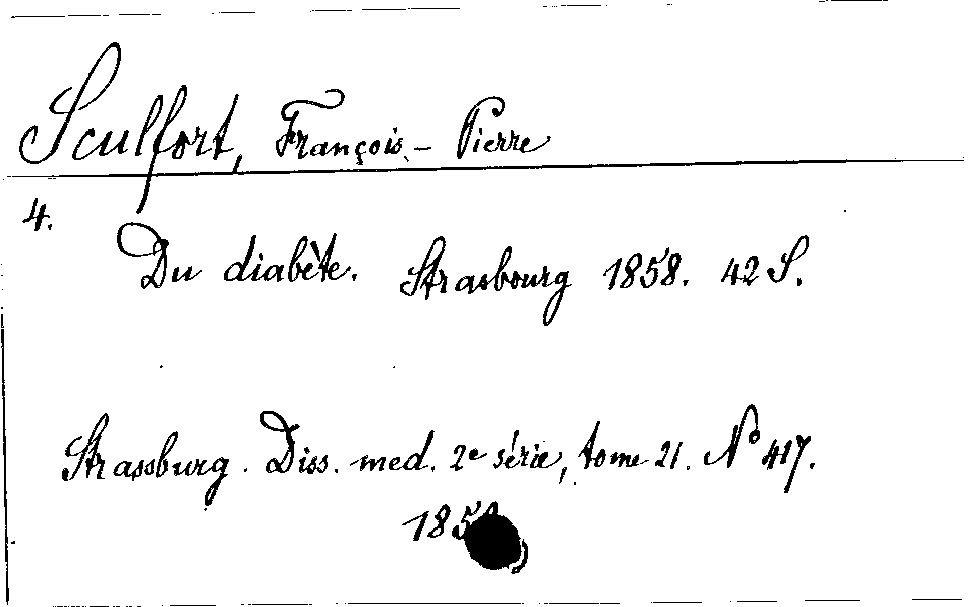 Sculfort, François-Pierre
4.
Du diabète. Strasbourg 1858. 42 S.
Strassburg. Diss. med. 2e série, tome 21. No 417.